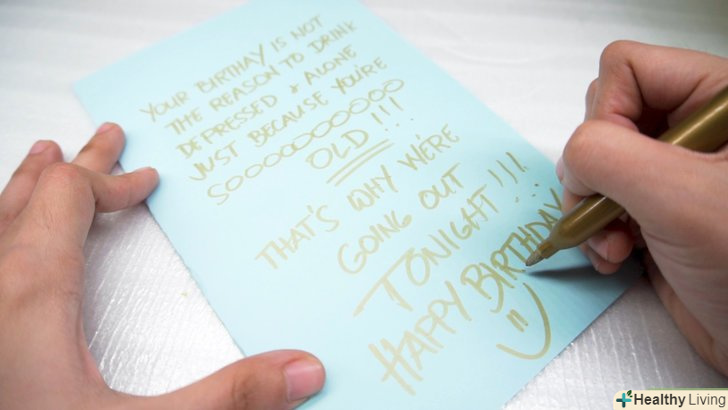 YOUR BIRTHAY IS NOT
THE REASON TO DRINK
DEPRESSED & ALONE
JUST BECAUSE YOU'RE
SOOOOOOOOOOO
OLD!!!
THAT'S WHY WE'RE
GOING OUT
TONIGHT!!!
HAPPY BIRTHDAY
Healthy Living